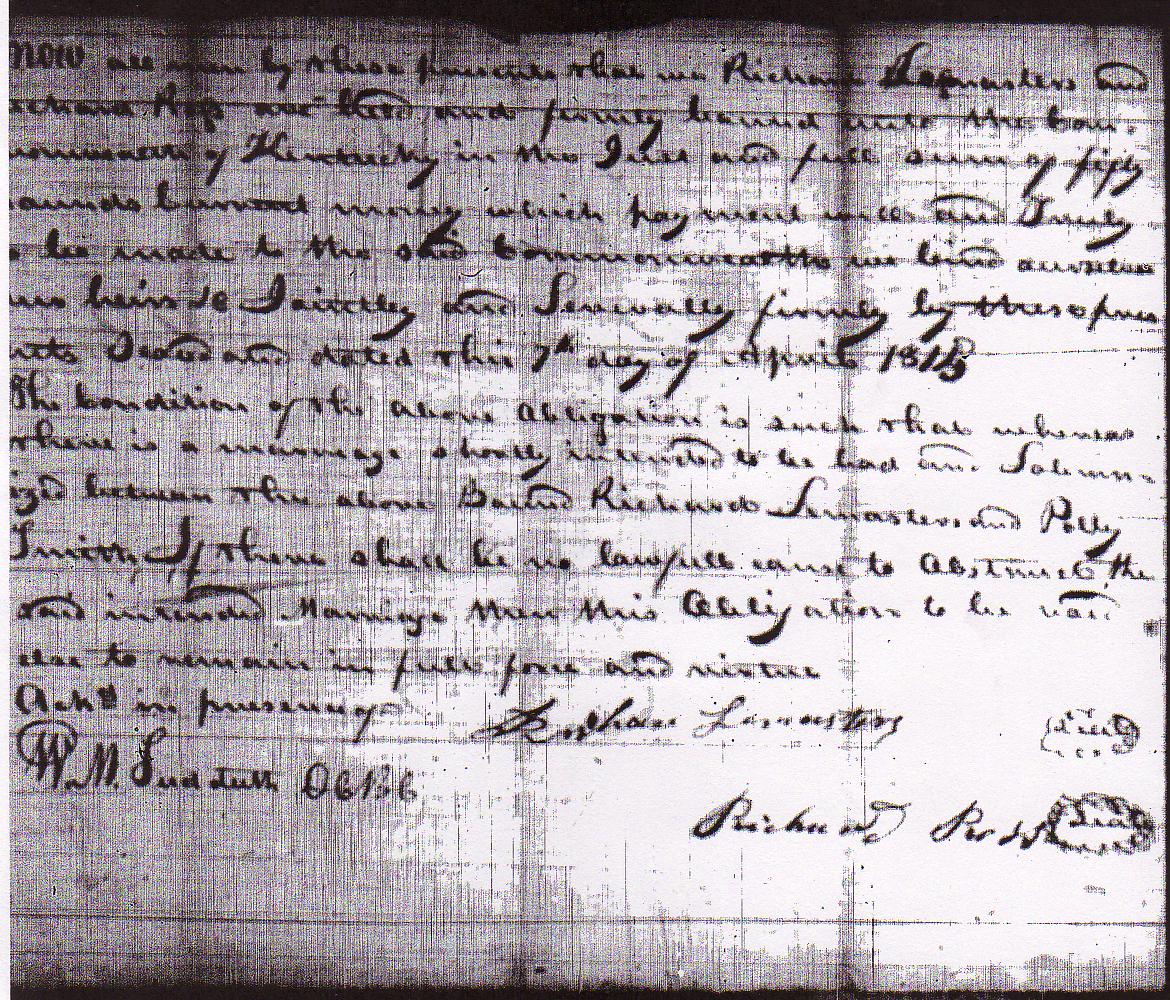 now all men by these presents that we Richard Lemasters and
Richard Ross are held and firmly bound unto the Com-
monwealth of Kentucky in the Just and full sum of fifty
pounds Current money which payment will and Truly
to be made to the said Commonwealth we bind ourselves
our heirs &c Jointly and Severally firmly by these pres
ents Seald and dated this 7th day of April 1815
The Condition of the above Obligation is such that whereas
there is a marriage shortly intended to be had and Solemn-
ized between the above Bound Richard Lemasters and Polly
Smith If there shall be no lawfull cause to Obstruct the
said intended Marriage then this Obligation to be void
else to remain in full force and virtue
Ackd in presence of Richard Lemasters Seal
W. M. Sudduth Richard Ross Seal